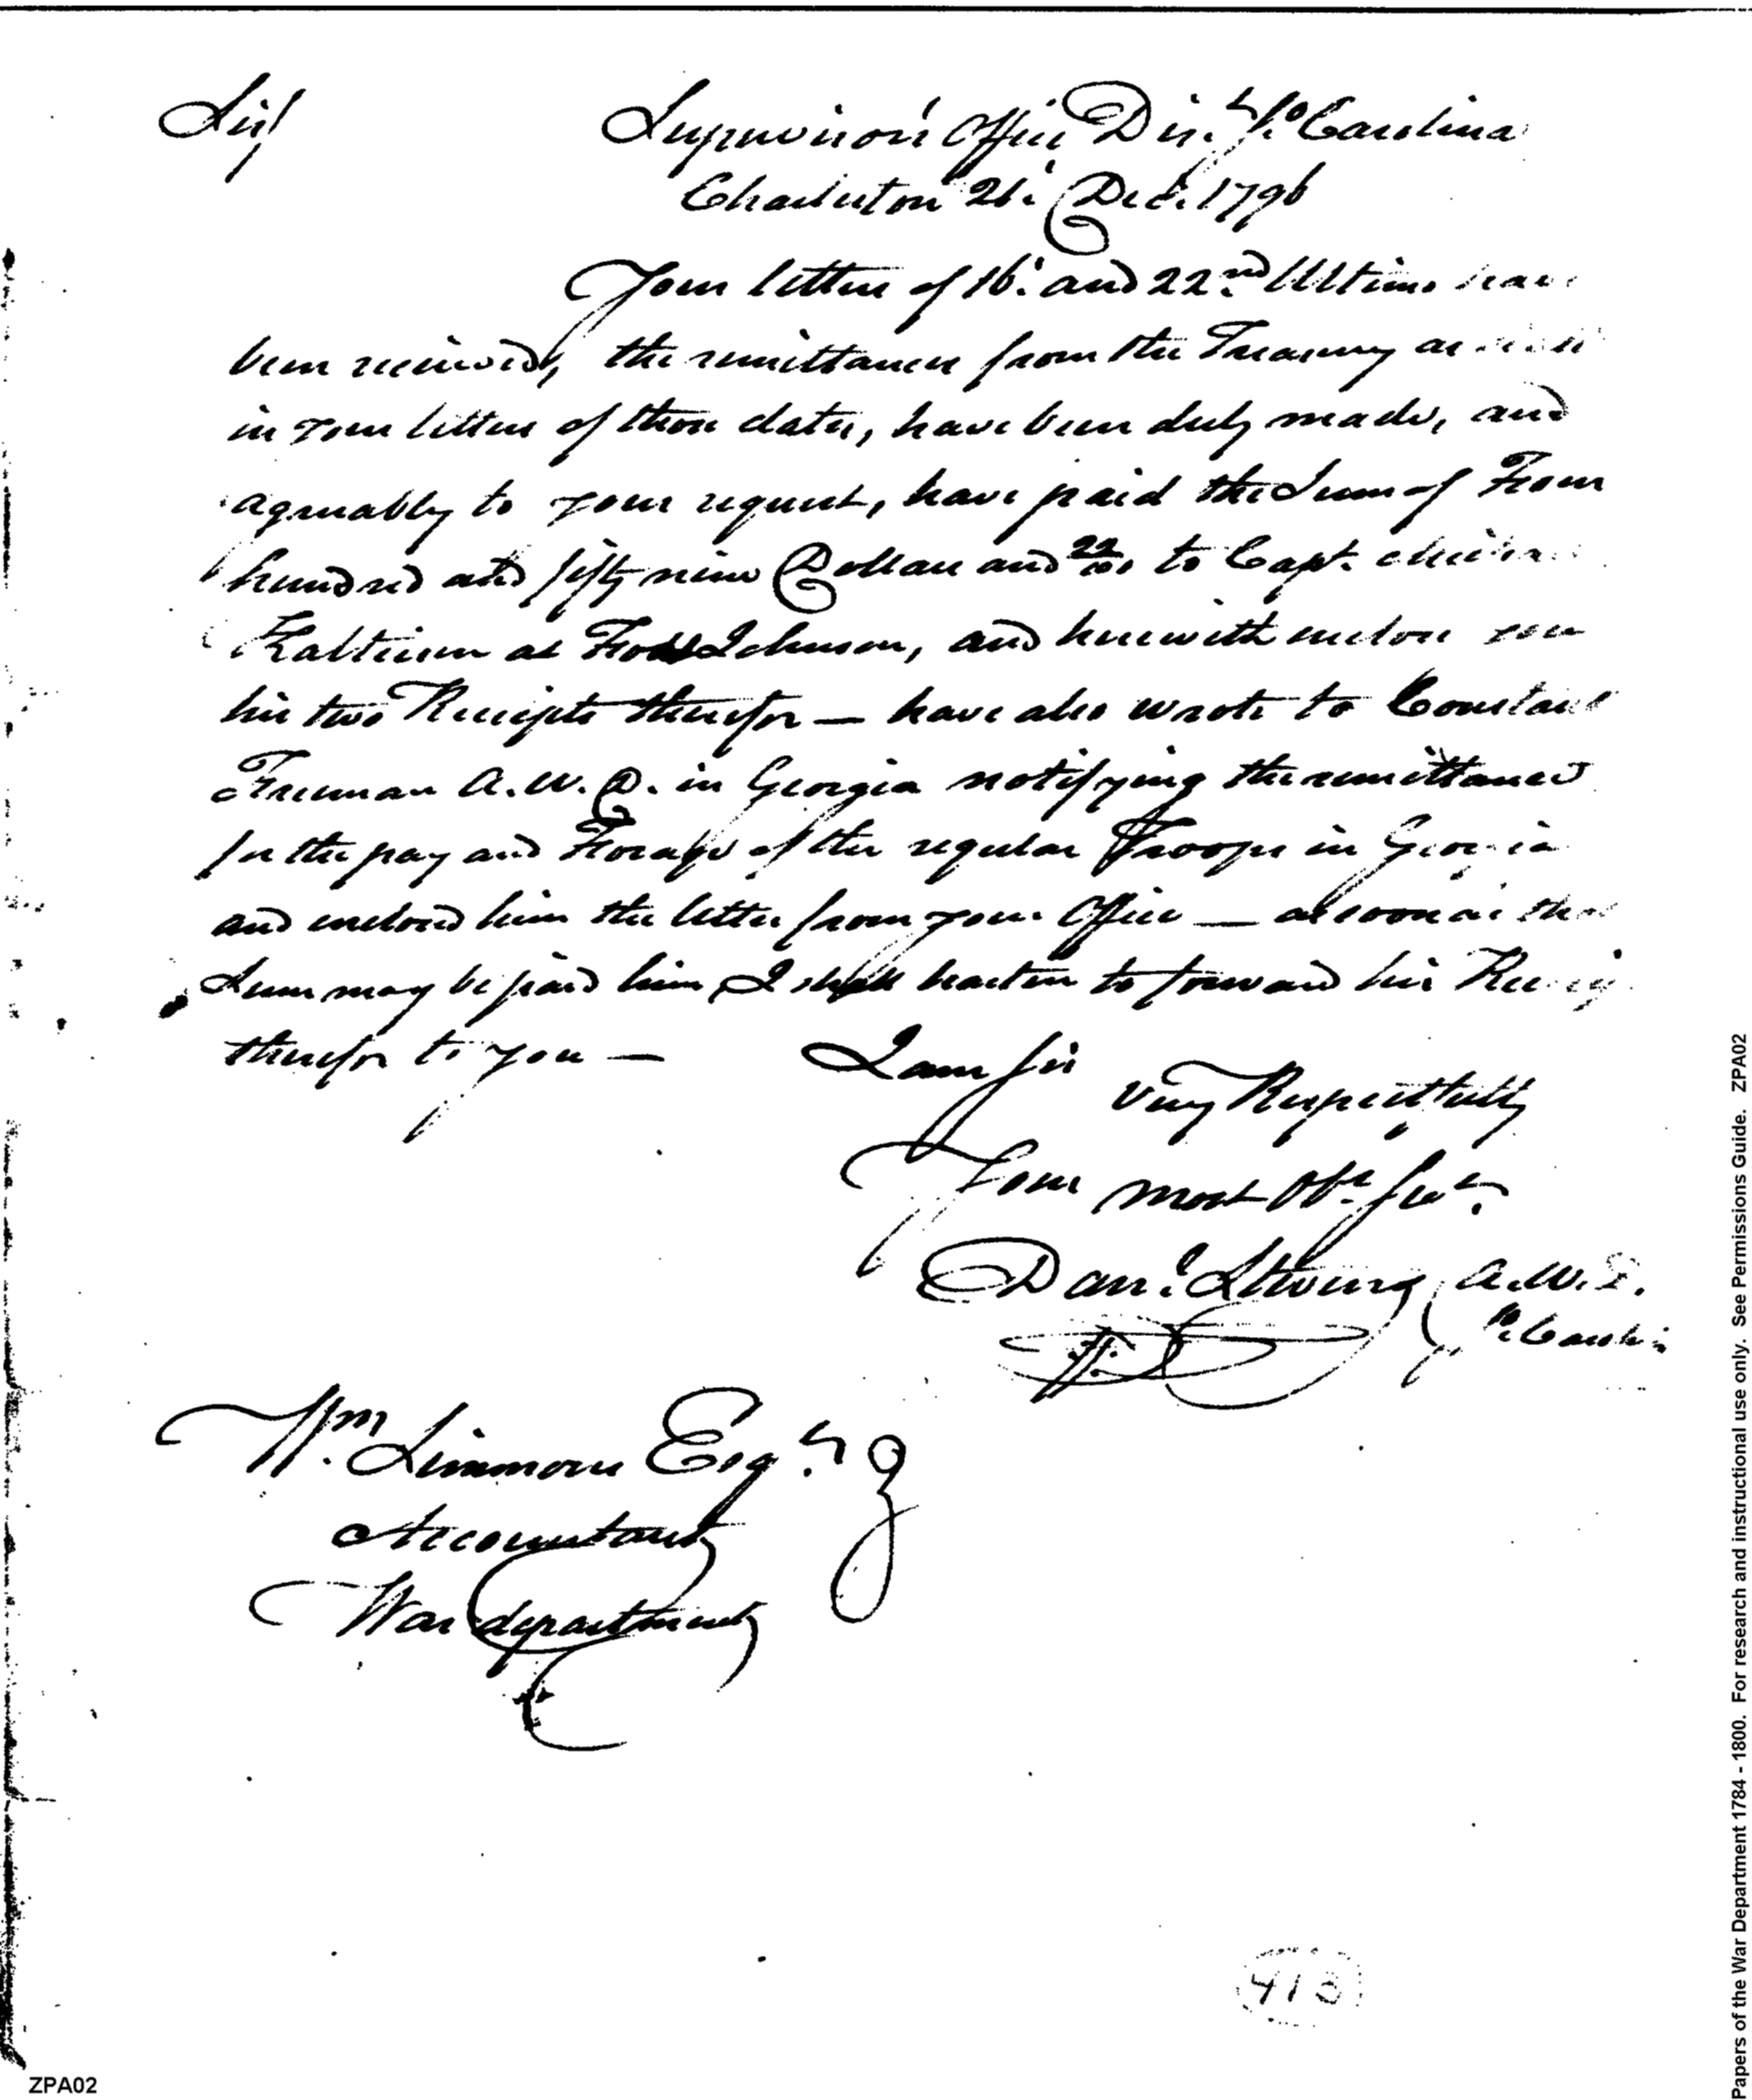 Sir/
Supervisor's Office Dis.t So Carolina
Charleston 21. Dec. 1796
Your letters of 16. and 22.nd Ultimo have
been received, the remittances from the Treasury as
in your letters of those dates, have been duly made, and
agreeably to your request, have paid the Sum of Four
hundred and fifty nine Dollars and 22/100 to Capt.
Kalteisen at Fort Johnson, and herewith enclose you
his two Receipts therefor — have also wrote to Constant
Freeman A.W.D. in Georgia notifying the remittance
for the pay and Forage of the regular Troops in Georgia
and enclosed him the letter from your Office — as soon as that
Sum may be paid him, I shall hasten to forward his
therefor to you —
I am Sir
Very Respectfully
Your most Ob.t Ser.t
Dan.l Stevens, A.W.
So Carolina
W.m Simmons Esq.r
Accountant
War department
413
ZPA02
Papers of the War Department 1784 - 1800. For research and instructional use only. See Permissions Guide. ZPA02